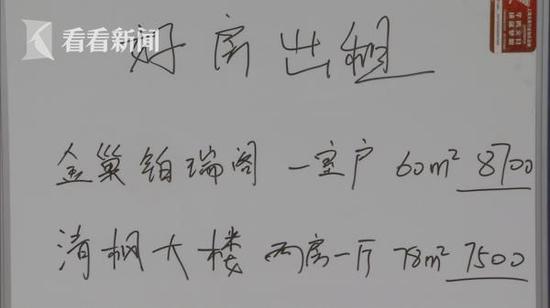 看看新闻
好房出租
金巢铂瑞阁 一室户 60m² 8700
清枫大楼 两房一厅 78m² 7500